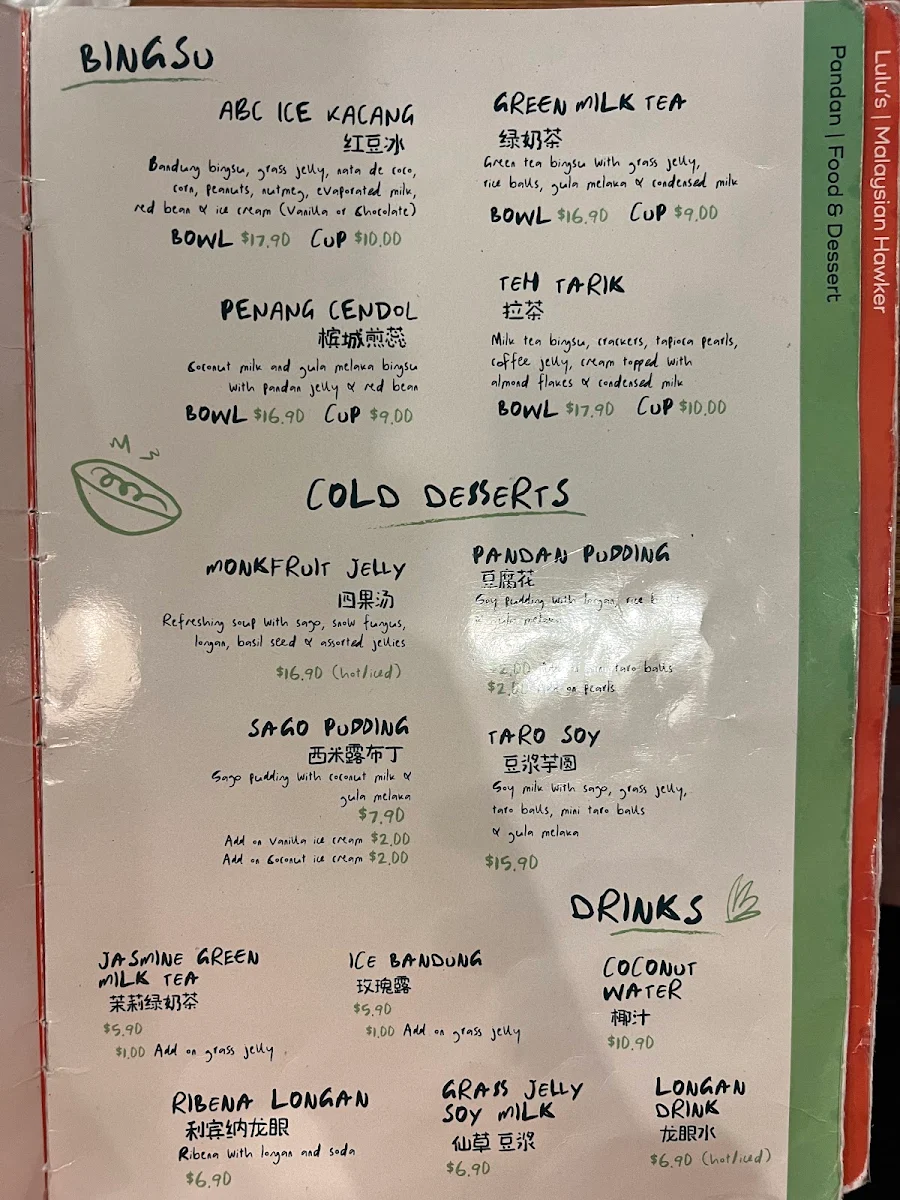 BINGSU
ABC ICE KACANG
红豆冰
Bandung bingsu, grass jelly, nata de coco,
corn, peanuts, nutmeg, evaporated milk,
red bean & ice cream (Vanilla or Chocolate)
BOWL $17.90 CUP $10.00
GREEN MILK TEA
绿奶茶
Green tea bingsu with grass jelly,
rice balls, gula melaka & condensed milk
BOWL $16.90 CUP $9.00
PENANG CENDOL
槟城煎蕊
Coconut milk and gula melaka bingsu
with pandan jelly & red bean
BOWL $16.90 CUP $9.00
TEH TARIK
拉茶
Milk tea bingsu, crackers, tapioca pearls,
coffee jelly, cream topped with
almond flakes & condensed milk
BOWL $17.90 CUP $10.00
COLD DESSERTS
MONKFRUIT JELLY
四果汤
Refreshing soup with sago, snow fungus,
longan, basil seed & assorted jellies
$16.90 (hot/iced)
PANDAN PUDDING
豆腐花
Soy pudding with longan, rice
& gula melaka
mini taro balls
on pearls
SAGO PUDDING
西米露布丁
Sago pudding with coconut milk &
gula melaka
$7.90
Add on Vanilla ice cream $2.00
Add on Coconut ice cream $2.00
TARO SOY
豆浆芋圆
Soy milk with sago, grass jelly,
taro balls, mini taro balls
& gula melaka
$15.90
DRINKS
JASMINE GREEN
MILK TEA
茉莉绿奶茶
$5.90
$1.00 Add on grass jelly
ICE BANDUNG
玫瑰露
$5.90
$1.00 Add on grass jelly
COCONUT
WATER
椰汁
$10.90
RIBENA LONGAN
利宾纳龙眼
Ribena with longan and soda
$6.90
GRASS JELLY
SOY MILK
仙草 豆浆
$6.90
LONGAN
DRINK
龙眼水
$6.90 (hot/iced)
Pandan | Food & Dessert
Lulu's | Malaysian Hawker